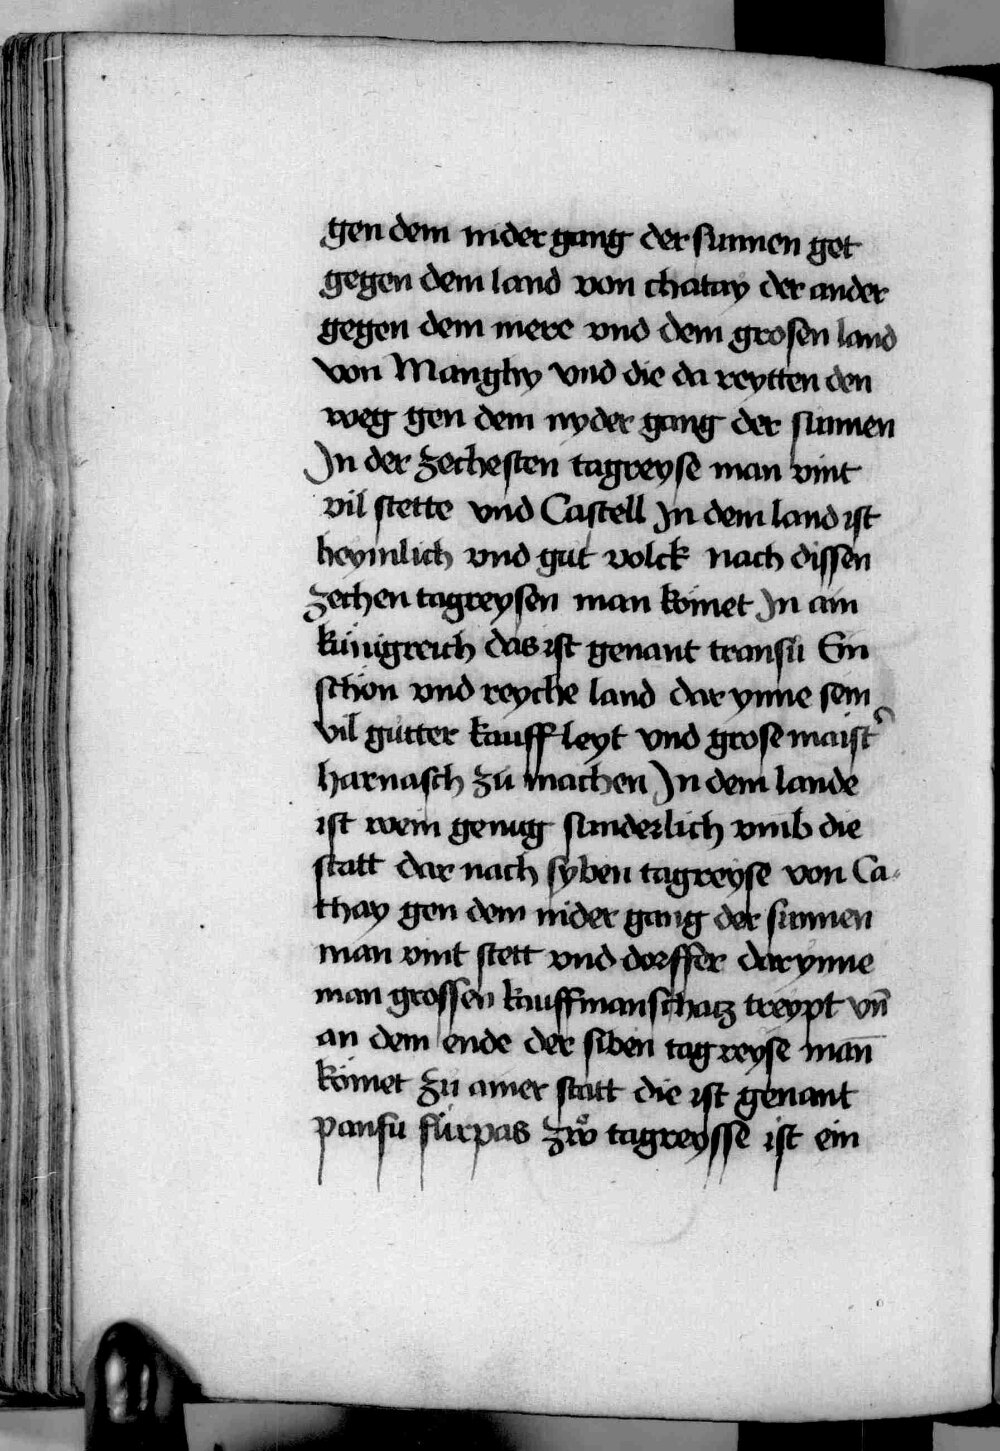 gen dem nider gang der sunnen get
gegen dem land von chatay der ander
gegen dem mere vnd dem grosen land
von Manghy vnd die da reytten den
weg gen dem nyder gang der sunnen
In der zechesten tagreyse man vint
vil stette vnd Castell In dem land ist
heymlich vnd gut volck nach dissen
zechen tagreysen man komet In ain
künigreich das ist genant transu Ein
schon vnd reyche land dar ynne sein
vil gutter kauff leyt vnd grose maist̾
harnasch zu machen In dem lande
ist wein genug sunderlich vmb die
statt dar nach syben tagreyse von Ca-
thay gen dem nider gang der sunnen
man vint stett vnd dorffer darynne
man grossen kauffmanschatz treypt vn̄
an dem ende der siben tagreyse man̄
komet zu ainer statt die ist genant
pansu fürpas zwͦ tagreysse ist ein